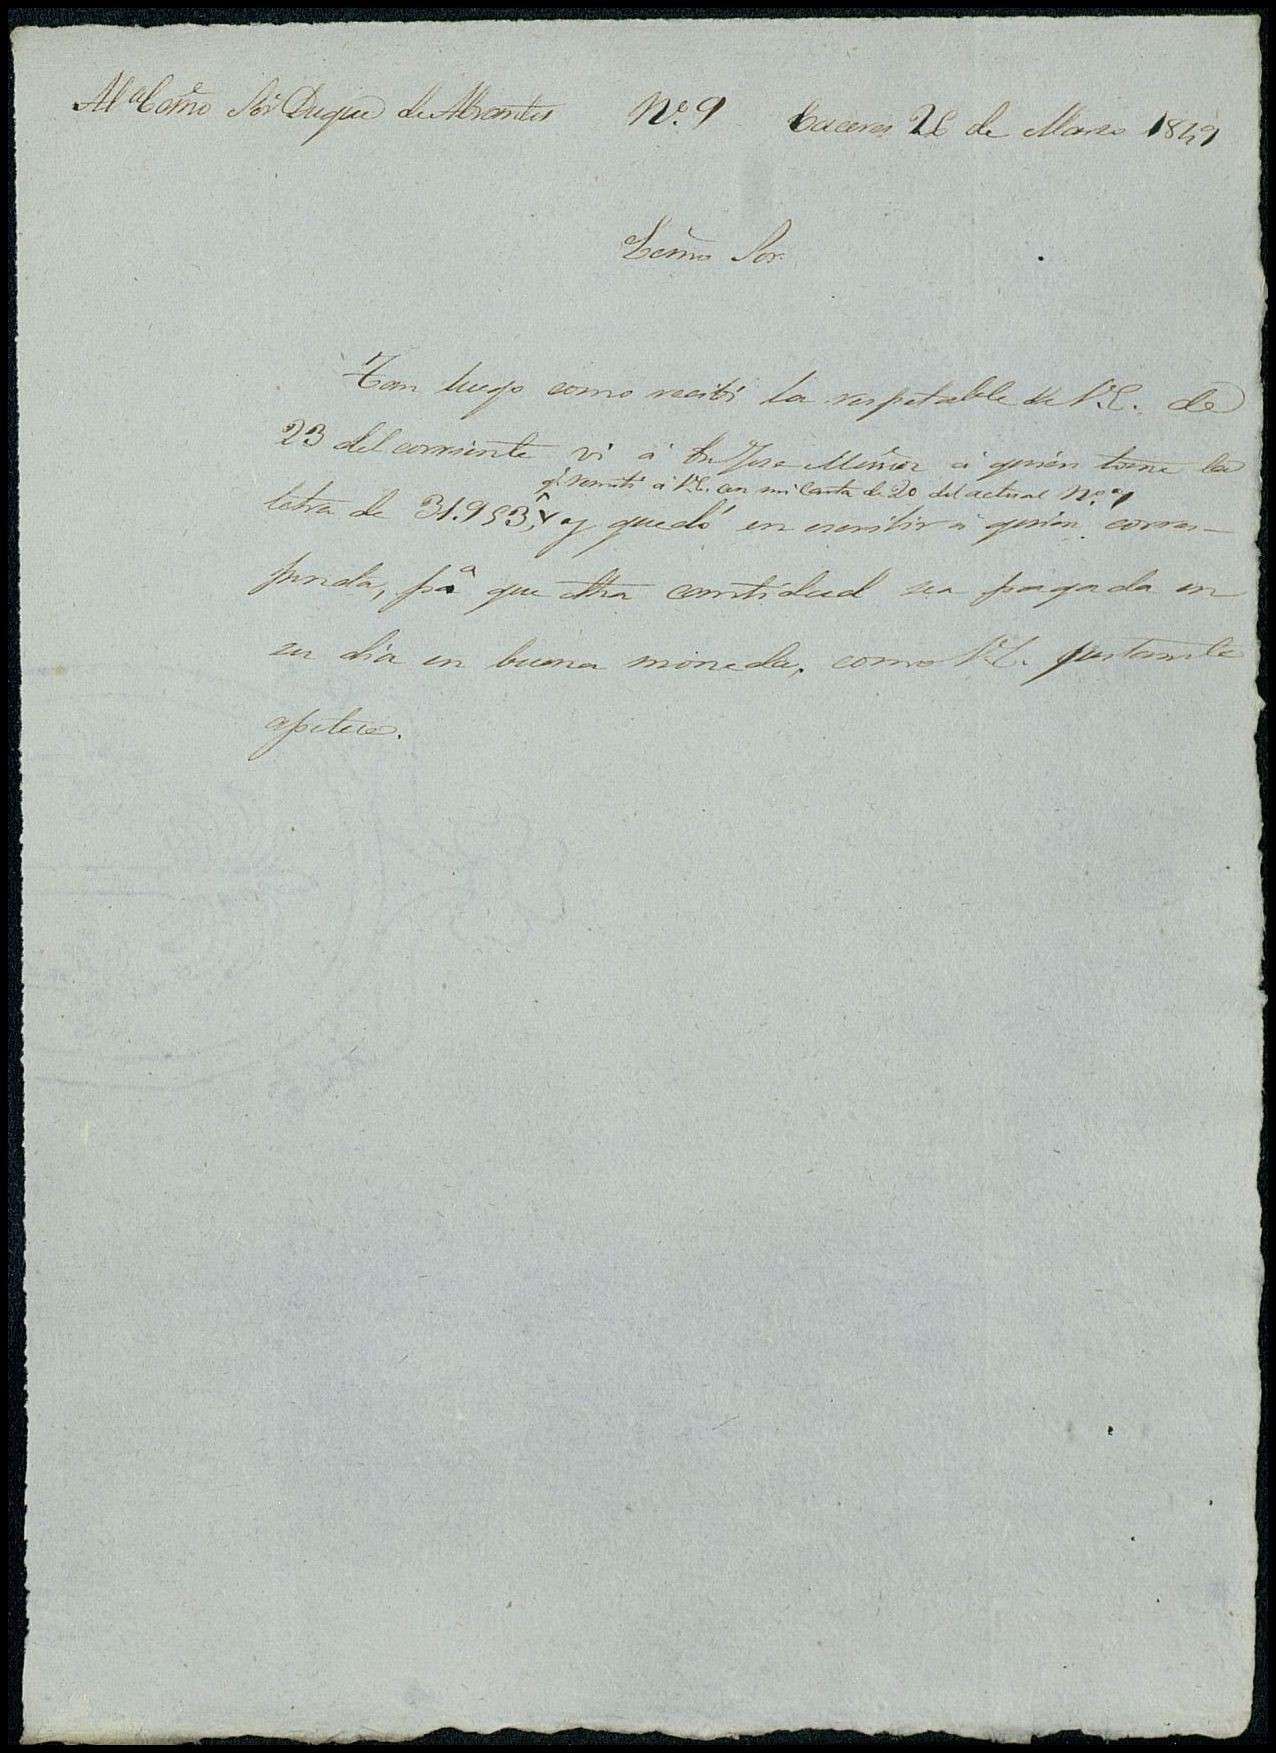 Al Escmo Sor Duque de Abrantes Nº. 9 Caceres 26 de Marzo 1849
Escmo Sor
Tan luego como recibí la respetable de V.E. de
23 del corriente vi á Dn Jose Muñoz á quien tome la
q.e remití á V.E. con mi carta de 20 del actual Nº
letra de 31.953, y quedó en escribir á quien corres-
ponda, pª que dha cantidad sea pagada en
su dia en buena moneda, como V.E. justamte
apetece.